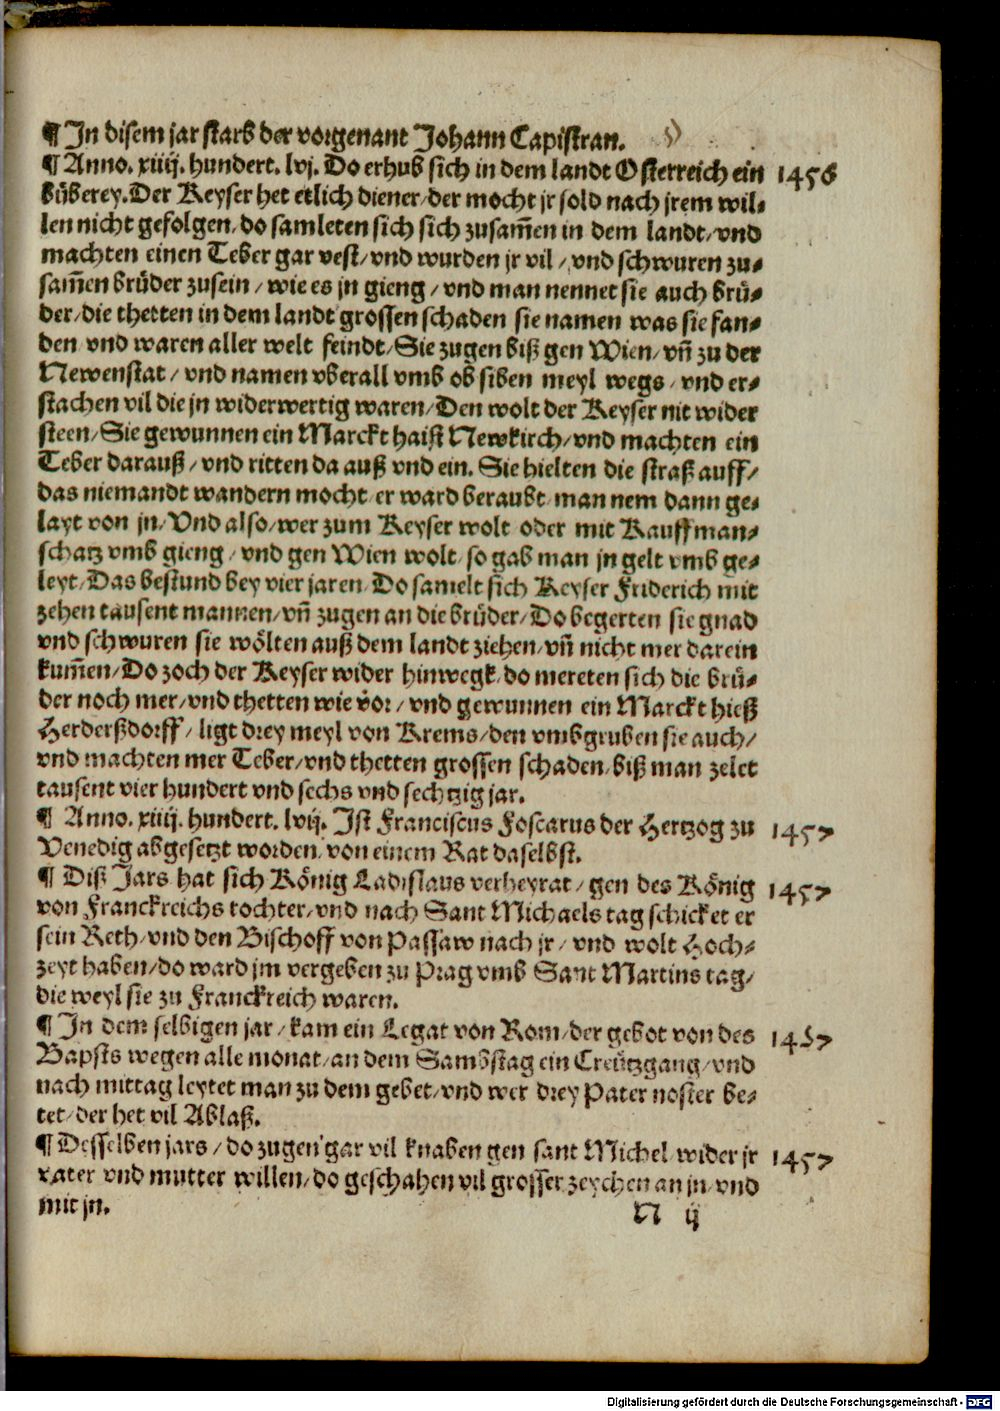 ¶ In disem jar starb der vorgenant Johann Capistran.
¶ Anno. xiiij. hundert. lvj. Do erhub sich in dem landt Osterreich ein 1456
bůberey. Der Keyser het etlich diener/ der mocht jr sold nach jrem wil⸗
len nicht gefolgen/ do samleten sich sich zusam̃en in dem landt/ vnd
machten einen Teber gar vest/ vnd wurden jr vil/ vnd schwuren zu⸗
sam̃en brůder zusein/ wie es jn gieng/ vnd man nennet sie auch brů⸗
der/ die thetten in dem landt grossen schaden sie namen was sie fan⸗
den vnd waren aller welt feindt/ Sie zugen biß gen Wien/ vñ zu der
Newenstat/ vnd namen vberall vmb ob siben meyl wegs/ vnd er⸗
stachen vil die jn widerwertig waren/ Den wolt der Keyser nit wider
steen/ Sie gewunnen ein Marckt haist Newkirch/ vnd machten ein
Teber darauß/ vnd ritten da auß vnd ein. Sie hielten die straß auff/
das niemandt wandern mocht/ er ward beraubt/ man nem dann ge⸗
layt von jn/ Vnd also/ wer zum Keyser wolt oder mit Kauffman⸗
schatz vmb gieng/ vnd gen Wien wolt/ so gab man jn gelt vmb ge⸗
leyt/ Das bestund bey vier jaren/ Do samelt sich Keyser Friderich mit
zehen tausent mannen/ vñ zugen an die brůder/ Do begerten sie gnad
vnd schwuren sie wölten auß dem landt ziehen/ vñ nicht mer darein
kum̃en/ Do zoch der Keyser wider hinwegk/ do mereten sich die brů⸗
der noch mer/ vnd thetten wie vor/ vnd gewunnen ein Marckt hieß
Herderßdorff/ ligt drey meyl von Krems/ den vmbgruben sie auch/
vnd machten mer Teber/ vnd thetten grossen schaden/ biß man zelet
tausent vier hundert vnd sechs vnd sechtzig jar.
¶ Anno. xiiij. hundert. lvij. Ist Franciscus Foscarus der Hertzog zu 1457
Venedig abgesetzt worden/ von einem Rat daselbst.
¶ Diß Jars hat sich König Ladislaus verheyrat/ gen des König 1457
von Franckreichs tochter/ vnd nach Sant Michaels tag schicket er
sein Reth/ vnd den Bischoff von Passaw nach jr/ vnd wolt Hoch⸗
zeyt haben/ do ward jm vergeben zu Prag vmb Sant Martins tag/
die weyl sie zu Franckreich waren.
¶ In dem selbigen jar/ kam ein Legat von Rom/ der gebot von des 1457
Bapsts wegen alle monat/ an dem Sambstag ein Creützgang/ vnd
nach mittag leytet man zu dem gebet/ vnd wer drey Pater noster be⸗
tet/ der het vil Ablaß.
¶ Desselben jars/ do zugen gar vil knaben gen sant Michel wider jr 1457
vater vnd mutter willen/ do geschahen vil grosser zeychen an jn/ vnd
mit jn.
N ij
Digitalisierung gefördert durch die Deutsche Forschungsgemeinschaft - DFG